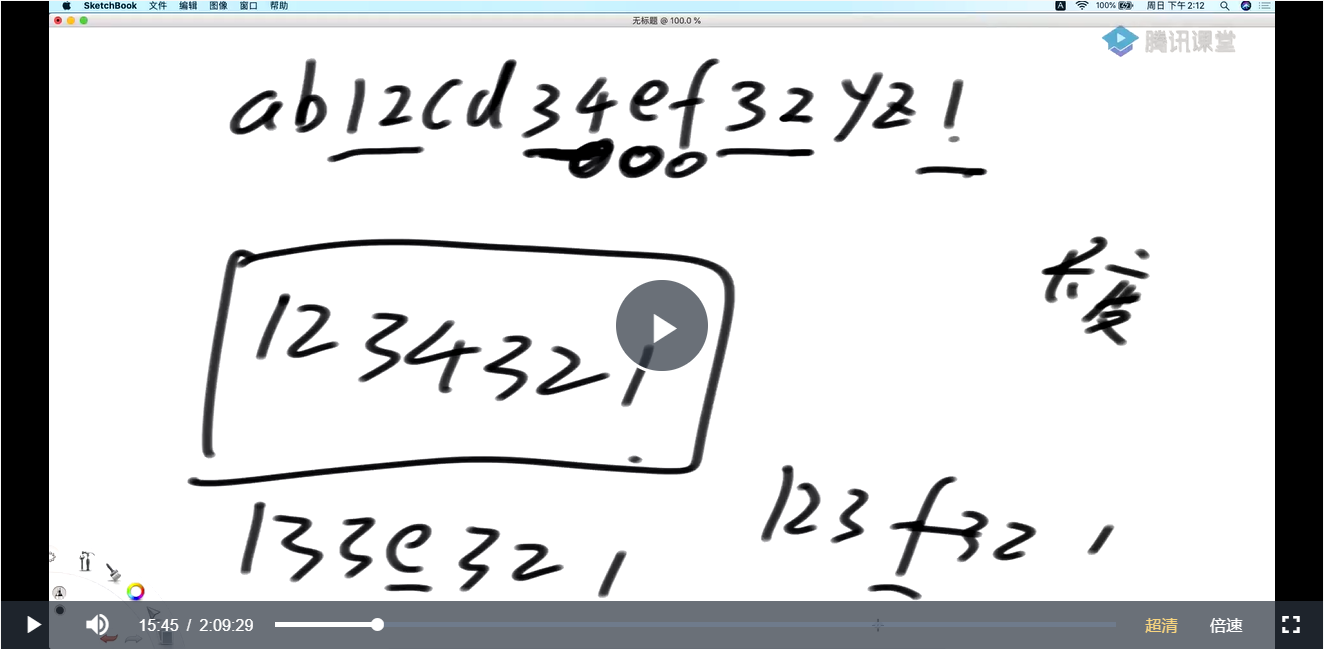 SketchBook 文件 编辑 图像 窗口 帮助 A 100% 周日 下午2:12
无标题 @ 100.0 %
腾讯课堂
ab12cd34ef32yz1
000
长度
1234321
123f321
133e321
15:45 / 2:09:29 超清 倍速